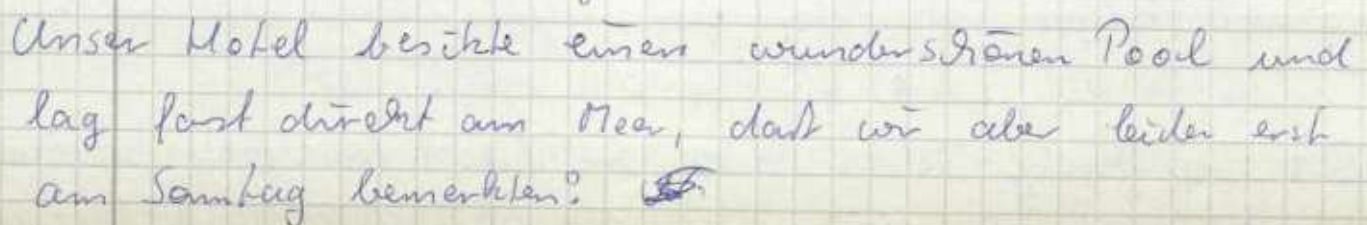 Unser Hotel besitzte einen wunderschönen Pool und
lag fast direkt am Meer, daß wir aber leider erst
am Sonntag bemerkten!